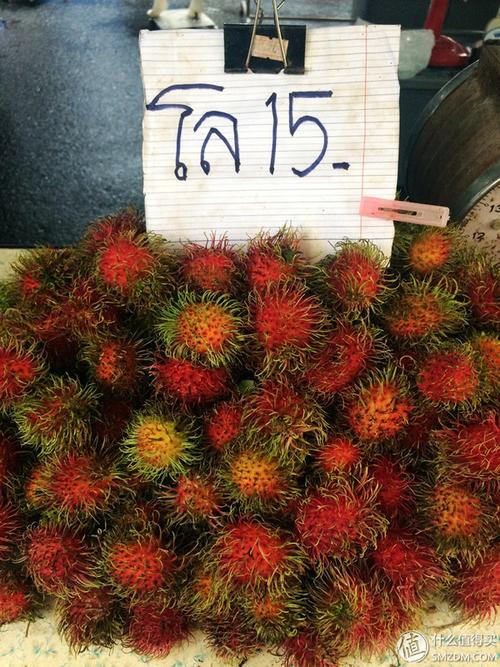 โล 15.-
13
12
值 什么值得买
SMZDM.COM